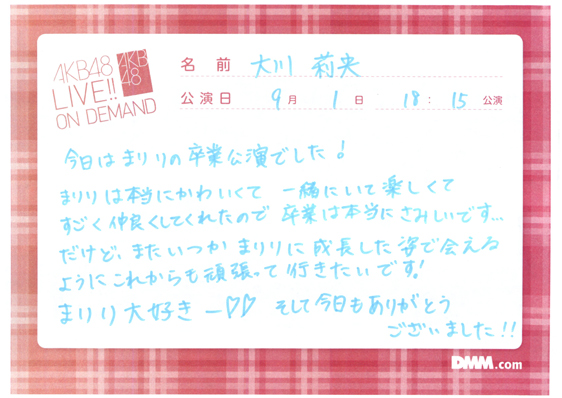 AKB48
LIVE!!
ON DEMAND
AKB
48
名前 大川 莉央
公演日 9月 1日 18:15 公演
今日はまりりの卒業公演でした!
まりりは本当にかわいくて 一緒にいて楽しくて
すごく仲良くしてくれたので 卒業は本当にさみしいです...
だけど、またいつか まりりに成長した姿で会える
ようにこれからも頑張って行きたいです!
まりり大好きー♡♡ そして今日もありがとう
ございました!!
DMM.com